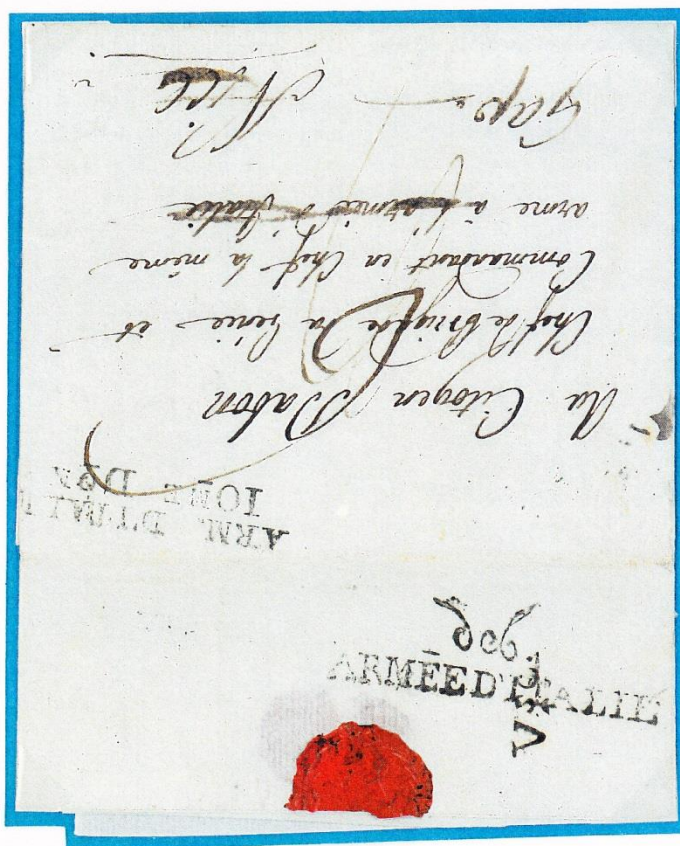 Au Citoyen Dabon
Chef de brigade du Génie et
Commandant en Chef la même
arme à l'armée d'Italie
Gap Nice
ARM. D'ITALI
IOME DON
deb
ARMÉE D'ITALIE